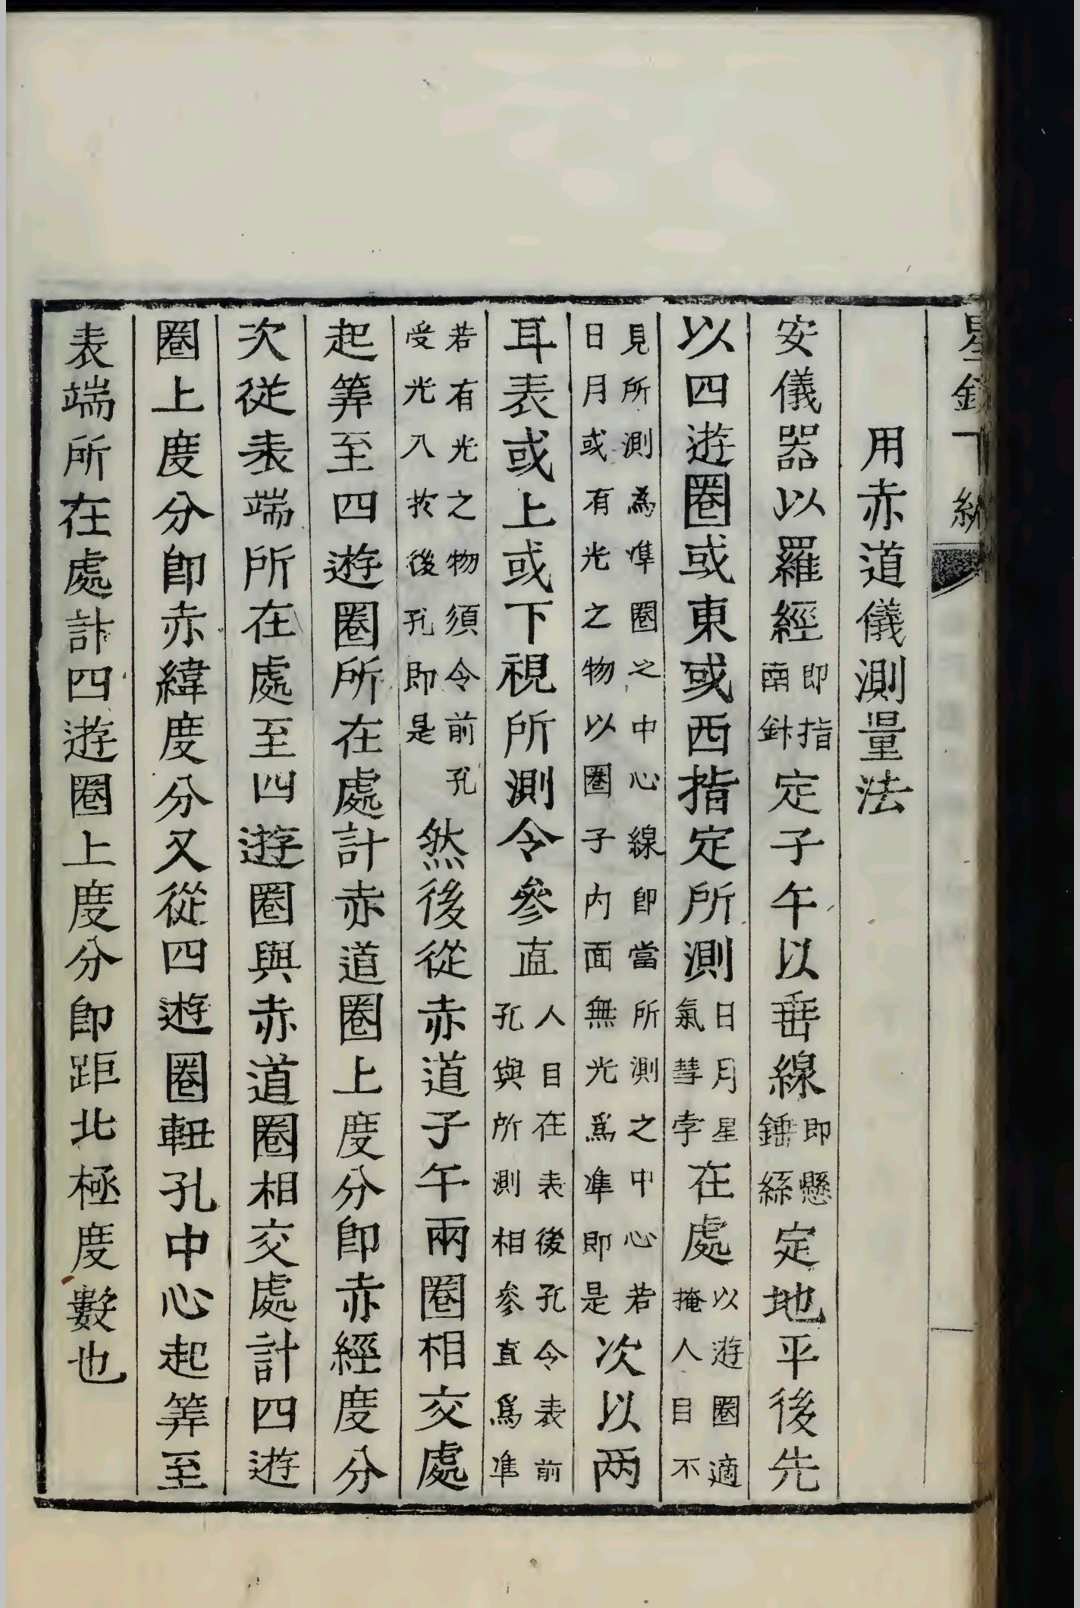 星鏡下
用赤道儀測量法
安儀器以羅經即指南針定子午以垂線即懸錘絲定地平後先
以四遊圈或東或西指定所測日月星氣彗孛在處以遊圈適掩人目不
見所測爲準圈之中心線即當所測之中心若日月或有光之物以圈子內面無光爲準即是次以两
耳表或上或下視所測令參直人目在表後孔令表前孔與所測相參直爲準
若有光之物須令前孔受光入於後孔即是然後從赤道子午兩圈相交處
起筭至四遊圈所在處計赤道圈上度分即赤經度分
次從表端所在處至四遊圈與赤道圈相交處計四遊
圈上度分即赤緯度分又從四遊圈軸孔中心起筭至
表端所在處計四遊圈上度分即距北極度數也